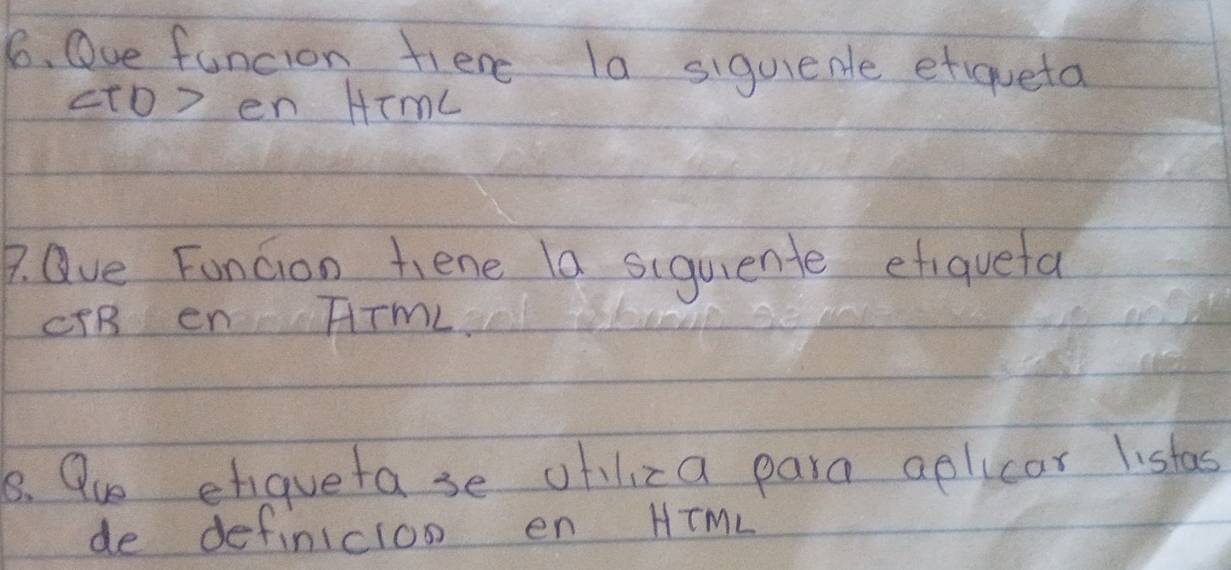 6. Que funcion tiene la siguiente etiqueta
<TD> en HTML
7. Que Funcion tiene la siguiente etiqueta
<TR en HTML.
8. Que etiqueta se utiliza para aplicar listas
de definicion en HTML